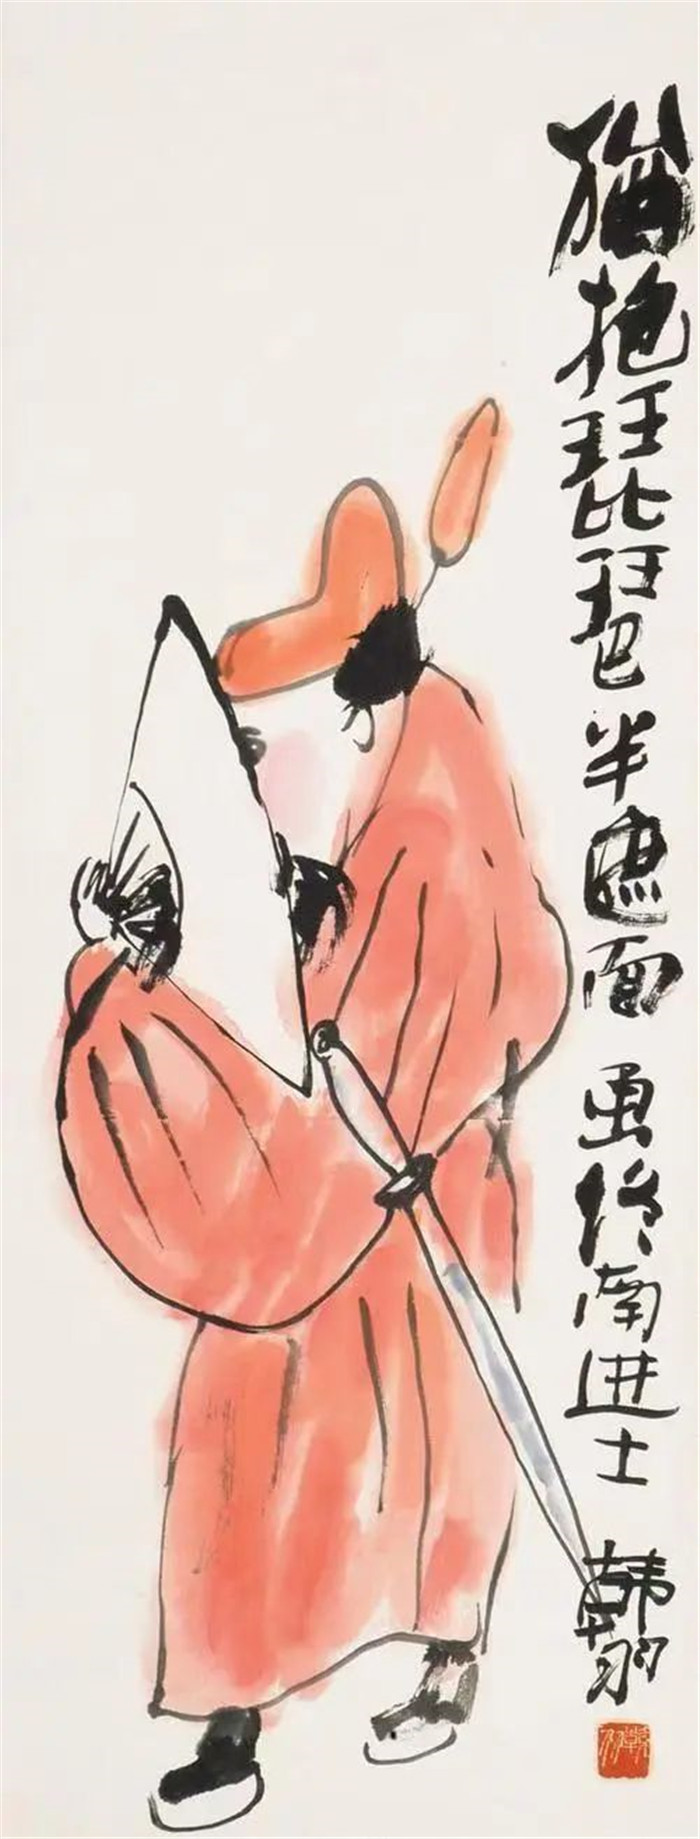 猶抱琵琶半遮面 画终南进士 韩羽